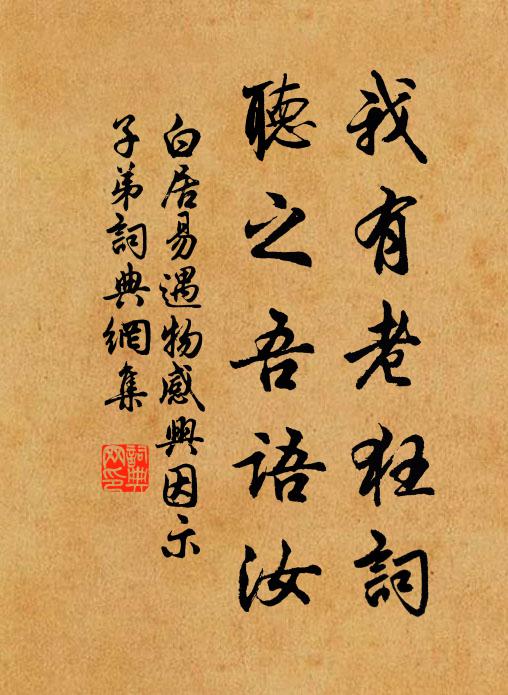 我有老狂詞
聽之吾語汝
白居易遇物感興因示
子弟詞典網集
詞典網印